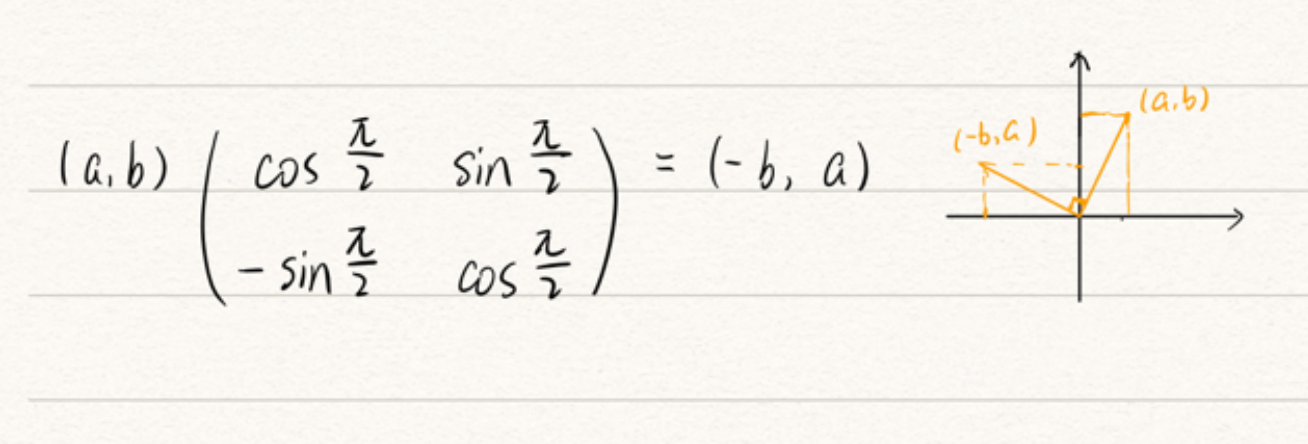 (a,b) ( cos π/2 sin π/2 = (-b, a)
-sin π/2 cos π/2 )
(a,b)
(-b,a)